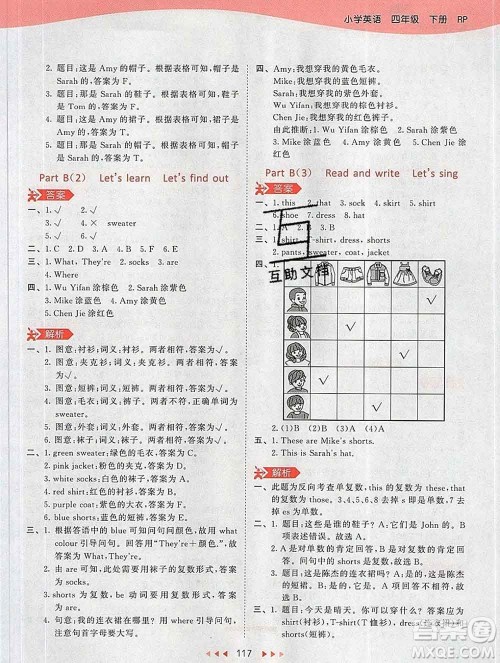 小学英语 四年级 下册 RP
2. 题目：这是 Amy 的帽子。根据表格可知，帽子是
Sarah 的。答案为 F。
3. 题目：那是 Sarah 的鞋子。根据表格可知，鞋子是
Tom 的。答案为 F。
4. 题目：这是 Amy 的裙子。根据表格可知，裙子是
Amy 的。答案为 T。
5. 题目：那是 Sarah 的帽子。根据表格可知，帽子是
Sarah 的。答案为 T。
Part B(2) Let's learn Let's find out
答案
一、1. √ 2. √
3. × 4. × sweater
5. √ 6. √
二、1. C 2. D 3. A 4. F 5. B 6. E
三、1. What, They're 2. socks 3. are
4. Where
四、1. Wu Yifan 涂棕色 2. Sarah 涂紫色
3. Mike 涂蓝色 4. Amy 涂黄色
5. Chen Jie 涂红色
解析
一、1. 图意：衬衫；词义：衬衫。两者相符，答案为√。
2. 图意：夹克衫；词义：夹克衫。两者相符，答案
为√。
3. 图意：短裤；词义：短裤。两者相符，答案为√。
sweater。
5. 图意：外套；词义：外套。两者相符，答案为√。
6. 图意：袜子；词义：袜子。两者相符，答案为√。
二、1. green sweater 绿色的毛衣。答案为 C。
2. pink jacket 粉色的夹克衫。答案为 D。
3. white socks 白色的袜子。答案为 A。
4. red skirt 红色的短裙。答案为 F。
5. purple coat 紫色的大衣。答案为 B。
6. blue shorts 蓝色的短裤。答案为 E。
三、1. 根据答语中的 blue 可知问句问颜色，故用 what
colour 引导问句。回答用“They're＋颜色.”。故
填 What; They're。
2. 由 are 可知，此处需要用复数形式，故在横线上
填 socks。
3. shorts 为复数，be 动词要用复数形式，故填
are。
4. 句意：我的连衣裙在哪儿？用 where 引导问句，
注意首字母要大写，故填 Where。
四、Amy：我想穿我的黄色毛衣。
Mike：我想穿我的蓝色短裤。
Sarah：我想穿我的紫色外套。
Wu Yifan：我想穿我的棕色衬衫。
Chen Jie：我想穿我的红色连衣裙。
由此推断：1. Wu Yifan 涂棕色 2. Sarah 涂紫色
3. Mike 涂蓝色 4. Amy 涂黄色
5. Chen Jie 涂红色
Part B(3) Read and write Let's sing
答案
一、1. this 2. that 3. sock 4. skirt 5. short
6. shoe 7. dress 8. hat
二、1. A 2. B 3. B
三、1. shirt, T-shirt, dress, shorts
2. pants, sweater, coat, jacket
四、1.
互助文档
2. (1)A (2)B
五、1. These are Mike's shorts.
2. This is Sarah's coat.
解析
一、此题为反向考查单复数，this 的复数为 these，that
的复数为 those。3、4、5、6、8 去掉 s，7 去掉
es 即可。
二、1. 题目：这些是他的鞋子吗？它们是 John 的。
2. A 是对单数的肯定回答，B 是对复数的肯定回
答。题目：那是陈杰的连衣裙吗？是的。故选 B。
3. A 是对单数的否定回答，B 是对复数的否定回
答。题目：这些是陈杰的短裤吗？不，不是。
故选 B。
三、1. 题目：今天是晴天，可以穿什么？答案：
shirt(衬衫)，T-shirt(T恤衫)，dress(连衣裙)和
shorts(短裤)。
117
作业帮
MXQE.COM